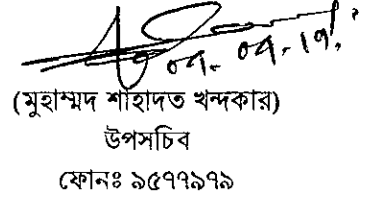 ০৭. ০৭. ১৭.
(মুহাম্মদ শাহাদত খন্দকার)
উপসচিব
ফোনঃ ৯৫৭৭৯৭৯